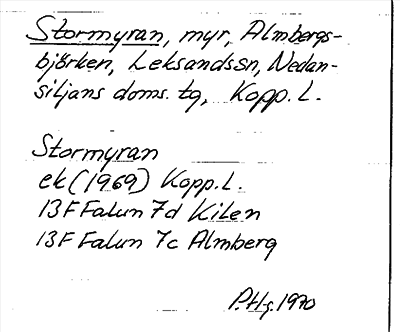 Stormyran, myr, Almbergs-
björken, Leksandssn, Nedan-
siljans doms. tg, Kopp. L.
Stormyran
ek (1969) Kopp. L.
13F Falun 7d Kilen
13F Falun 7c Almberg
P.Hg. 1970